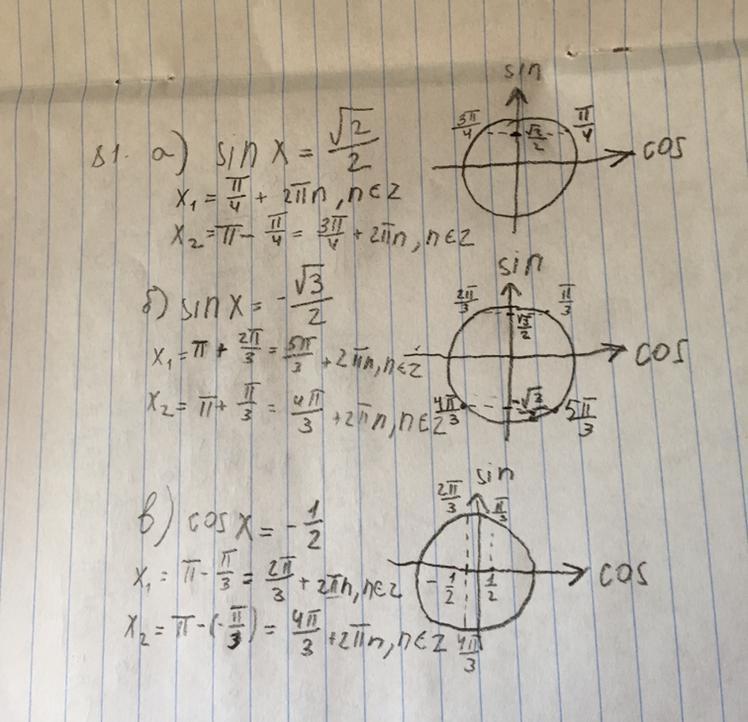 81. а) sin x = √2/2
x₁ = π/4 + 2πn, n∈Z
x₂ = π - π/4 = 3π/4 + 2πn, n∈Z
sin
3π/4 π/4
√2/2
cos
б) sin x = -√3/2
x₁ = π + 2π/3 = 5π/3 + 2πn, n∈Z
x₂ = π + π/3 = 4π/3 + 2πn, n∈Z
sin
2π/3 π/3
√3/2
cos
4π/3 -√3/2 5π/3
в) cos x = -1/2
x₁ = π - π/3 = 2π/3 + 2πn, n∈Z
x₂ = π - (-π/3) = 4π/3 + 2πn, n∈Z
sin
2π/3 π/3
cos
-1/2 1/2
4π/3